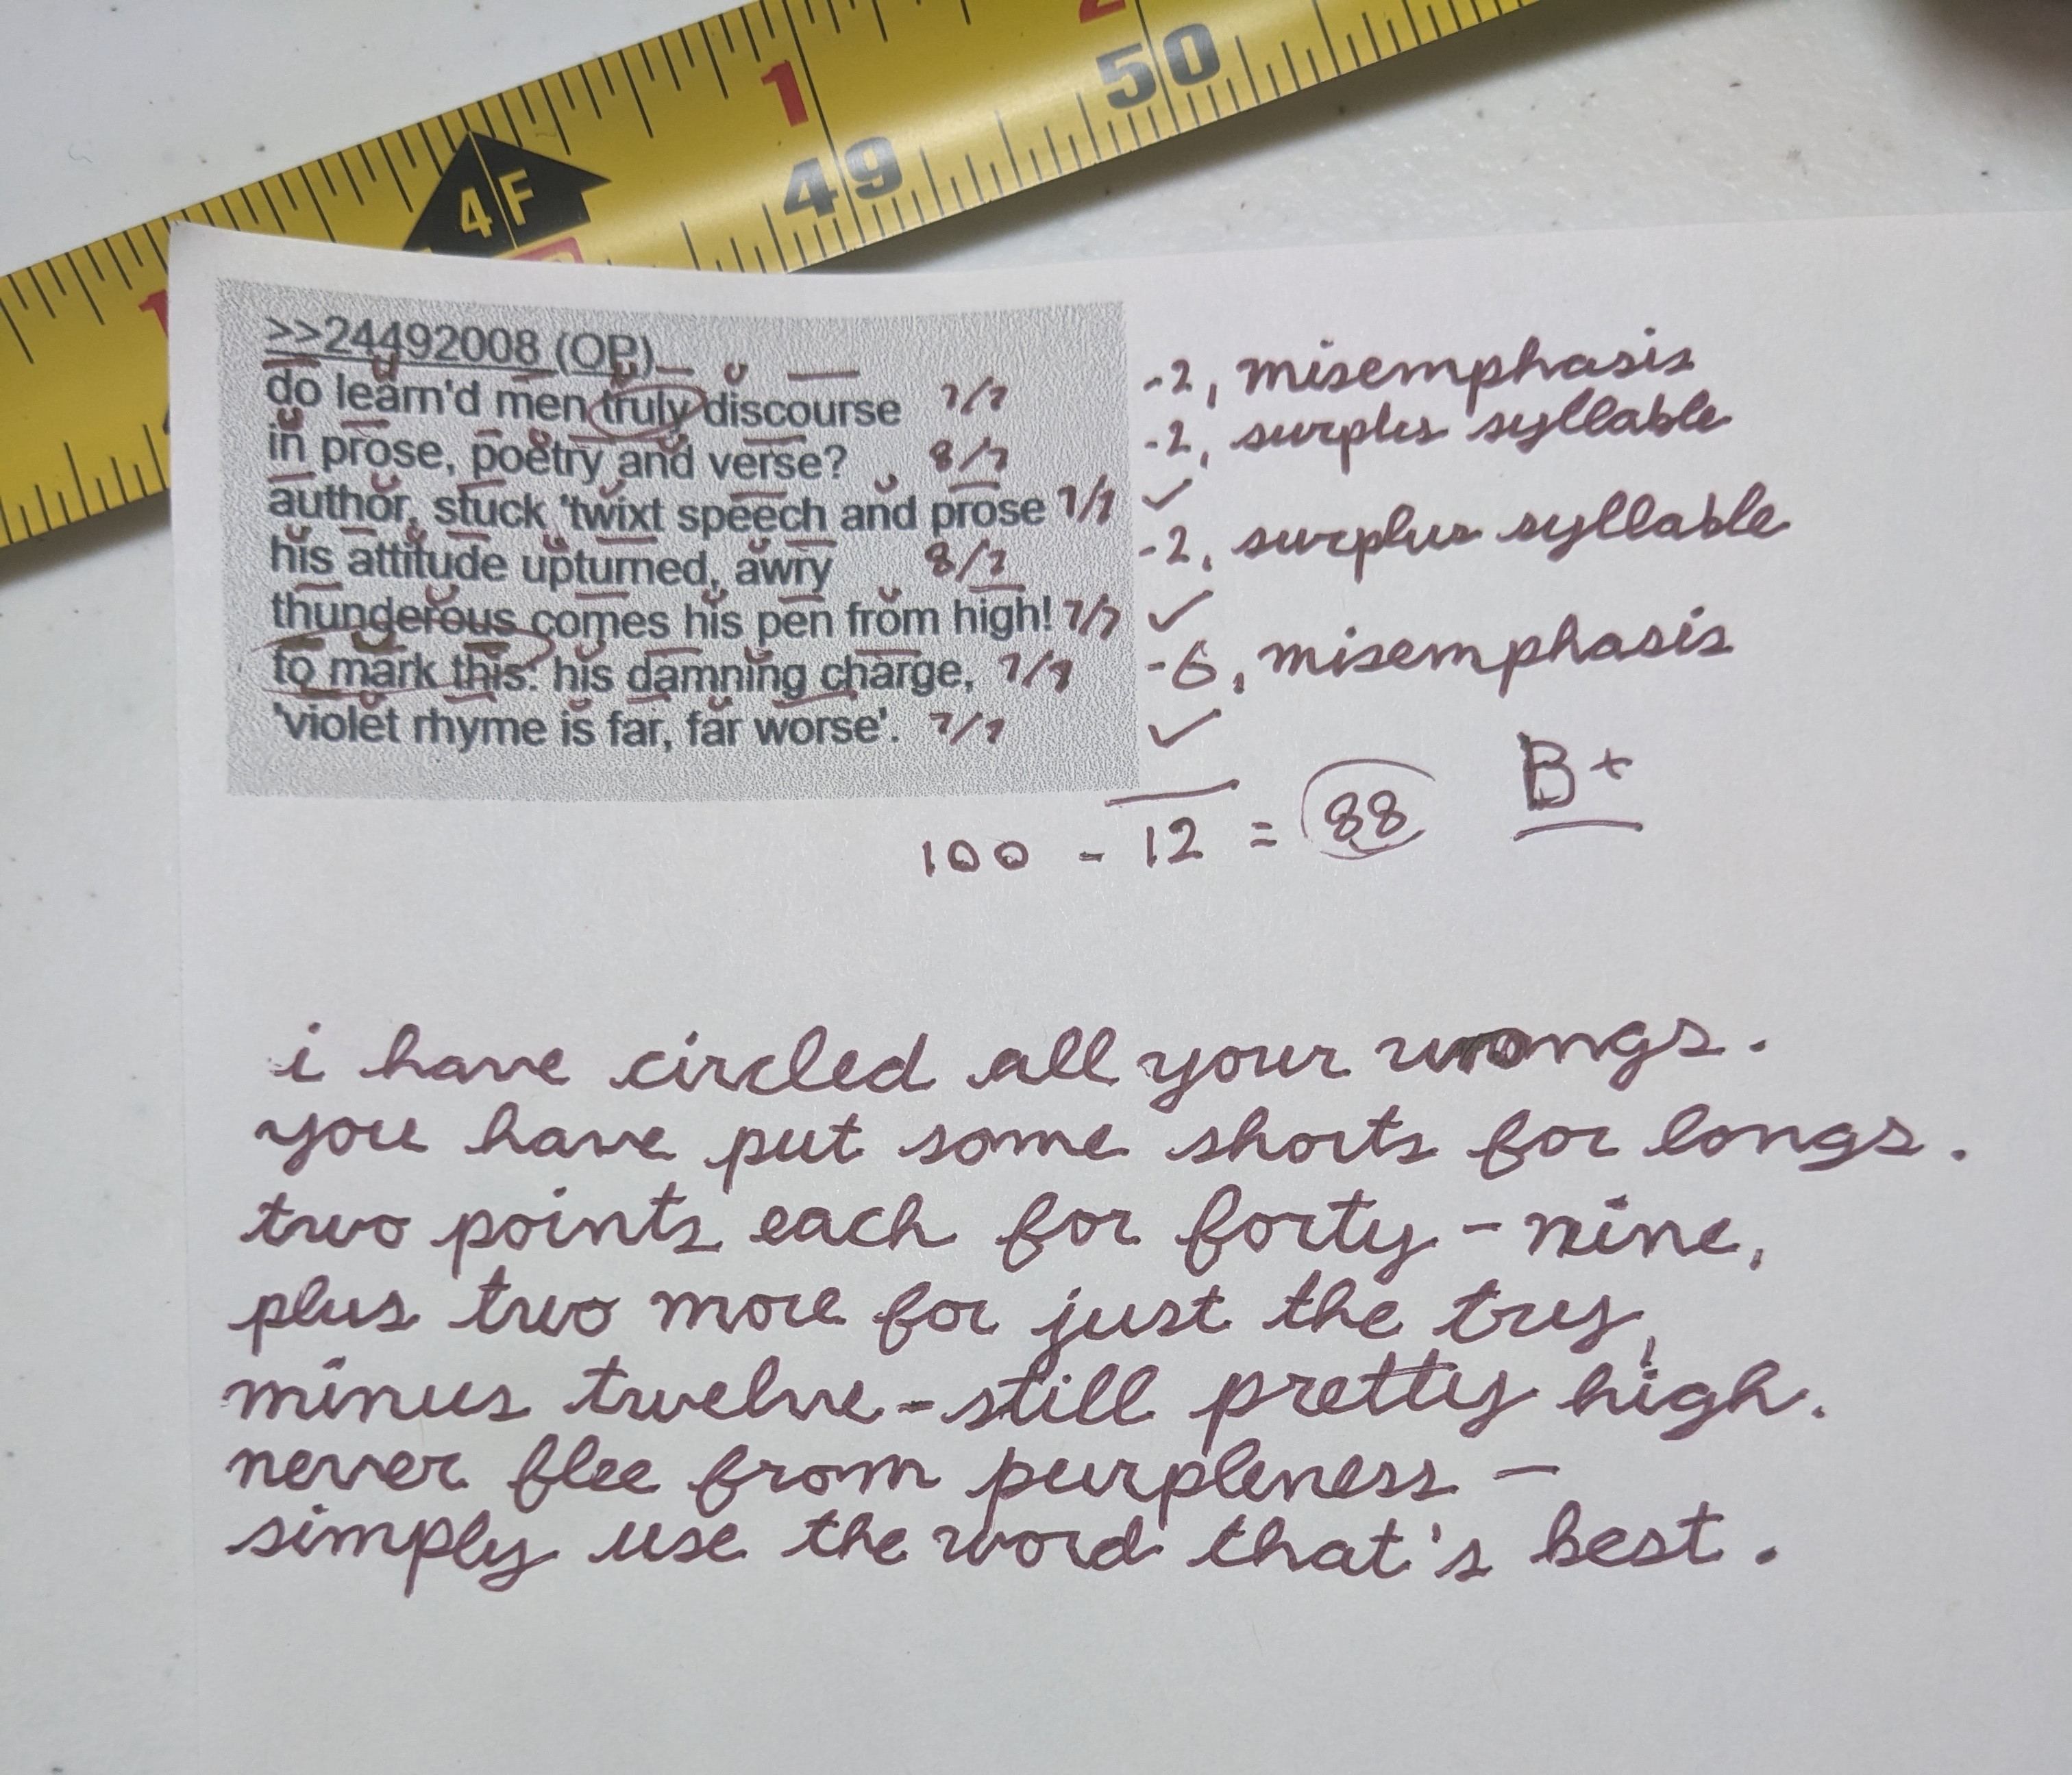 1 2
49 50
4F
1
>>24492008 (OP)
do learn'd men truly discourse 7/7 -2, misemphasis
in prose, poetry and verse? 8/7 -2, surplus syllable
author, stuck 'twixt speech and prose 7/7 ✓
his attitude upturned, awry 8/7 -2, surplus syllable
thunderous comes his pen from high! 7/7 ✓
to mark this: his damning charge, 7/7 -6, misemphasis
'violet rhyme is far, far worse'. 7/7 ✓
100 - 12 = 88 B+
i have circled all your wrongs.
you have put some shorts for longs.
two points each for forty-nine,
plus two more for just the try,
minus twelve - still pretty high.
never flee from purpleness -
simply use the word that's best.